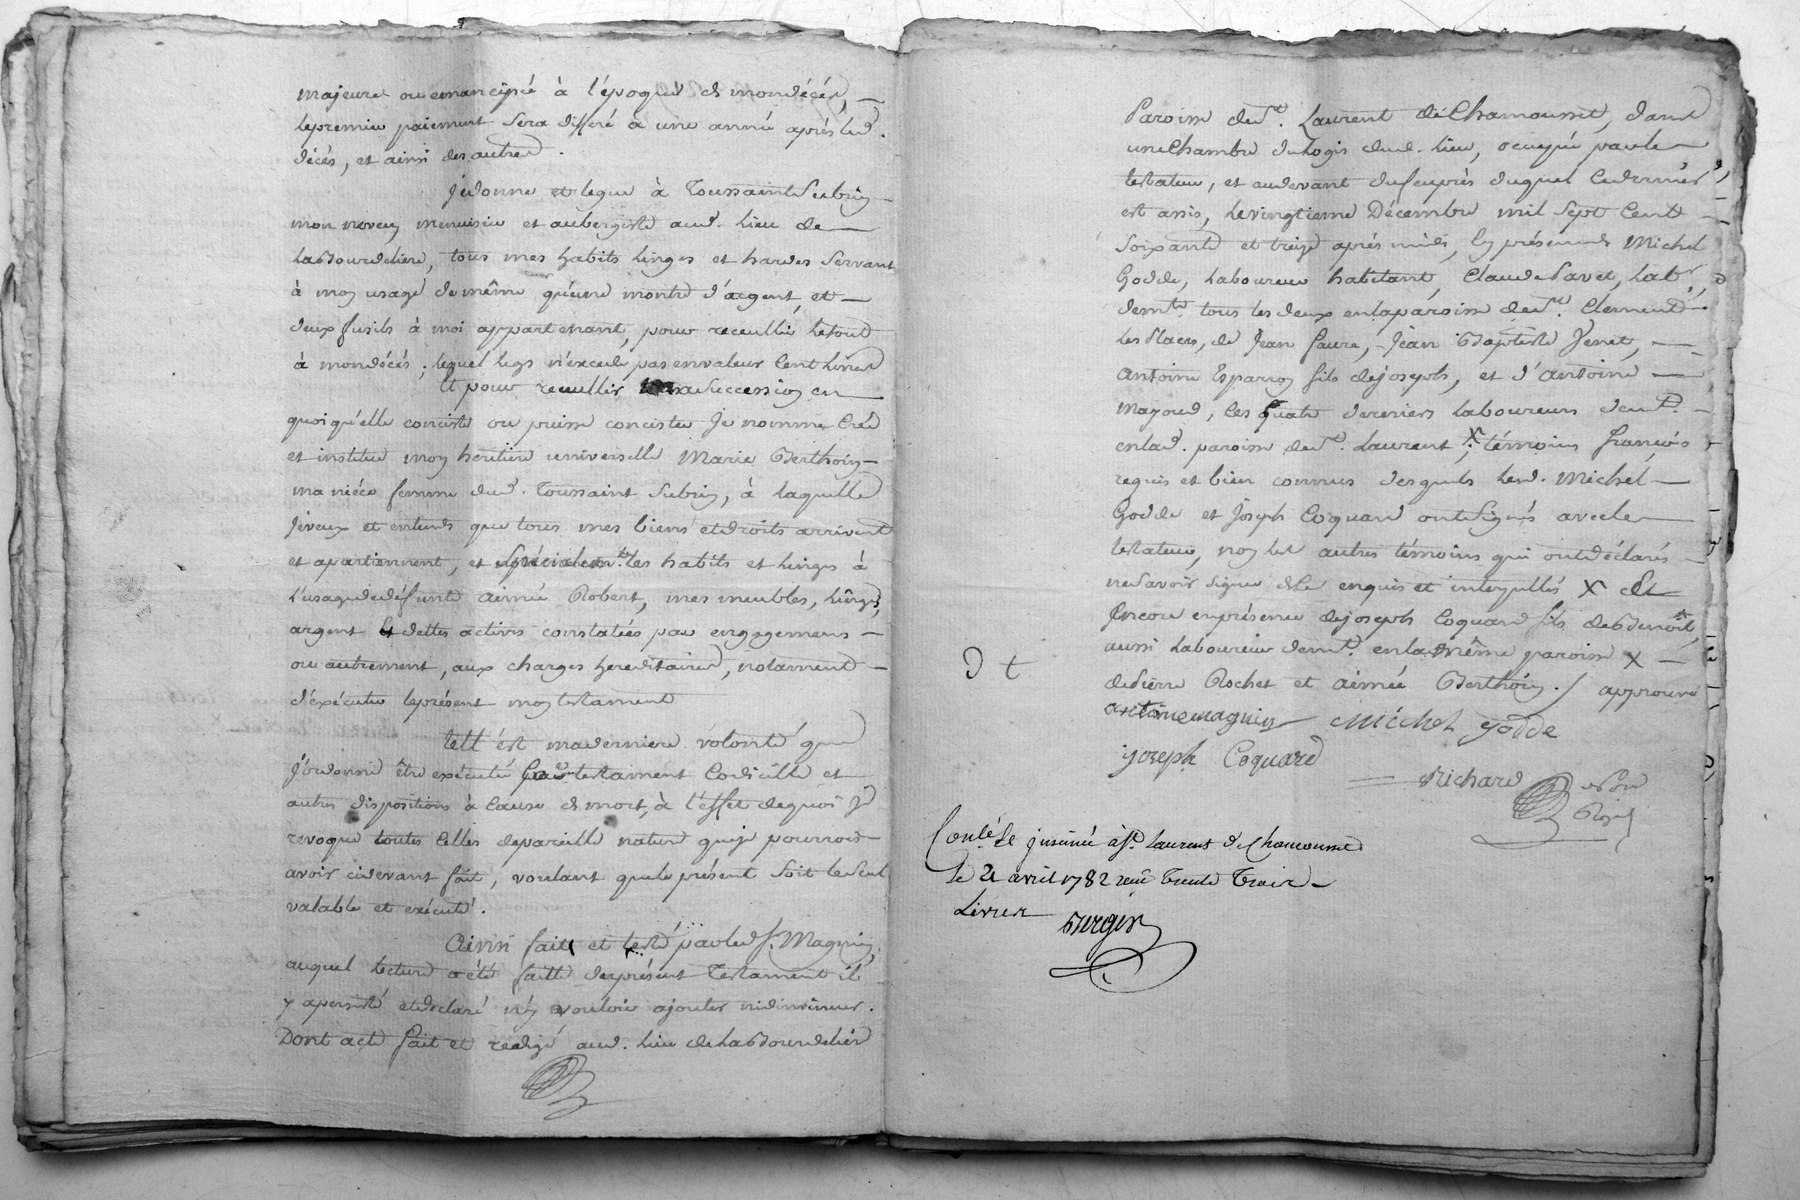 majeure ou emancipée à l'époque de mon décés,
le premier paiement sera differé à une année aprés led.
décés, et ainsi des autres.
Je donne et legue à Toussaint Subrin
mon neveu menuisier et aubergiste aud. lieu de
La Bourdeliere, tous mes habits linges et hardes servant
à mon usage de même qu'une montre d'argent, et
deux fusils à moi appartenant, pour receuillir le tout
à mon décés; lequel legs n'excede pas en valeur cent livres
Et pour receuillir ma succession en
quoi qu'elle conciste ou puisse concister Je nomme Crée
et institue mon heritiere universelle Marie Berthoin
ma niéce femme dud. Toussaint Subrin, à laquelle
Je veux et entends que tous mes biens et droits arrivent
et apartiennent, et spécialemt. les habits et linges à
l'usage de défunte aimée Robert, mes meubles, linges,
argent et dettes actives constatées par engagemens
ou autrement, aux charges hereditaires, notament
d'exécuter le présent mon testament
Telle est ma derniere volonté que
J'ordonne être exécutée par testament Codicille et
autres dispositions à cause de mort, à l'effet de quoi Je
revoque toutes celles de pareille nature que je pourrois
avoir cidevant fait, voulant que le présent soit le seul
valable et exécuté.
Ainsi fait et testé par led. s. Magnin,
auquel lecture a été faitte du présent Testament il
y a persisté et déclaré n'y vouloir ajouter ni diminuer.
Dont acte fait et redigé aud. lieu de La Bourdeliere
Paroisse de st. Laurent de Chamousset, dans
une Chambre du Logis dud. lieu, ocupée par le
testateur, et audevant du feu prés duquel ce dernier
est assis, le vingtieme Décembre mil sept cent
soixante et treize aprés midi, En présence de Michel
Godde, Laboureur habitant, Claude Pavet, labr.,
demt. tous les deux en la paroisse de st. Clement
les Places, de Jean faure, Jean Baptiste Venet,
Antoine Esparron fils de joseph, et d'antoine
Magoud, les quatre derniers laboureurs demt.
en lad. paroisse de st. Laurent, X témoins françois
requis et bien connus desquels led. Michel
Godde et Joseph Coquard ont signés avec le
testateur, non les autres témoins qui ont déclarés
ne savoir signer de ce enquis et interpellés X Et
Encore en présence de joseph Coquard fils de Benoit,
aussi Laboureur demt. en la même paroisse X
de Pierre Rochet et aimée Berthoin ./ approuvé
antoine magnin michel godde
joseph Coquard
Richard
Conlé. et Insinué à St. Laurent de Chamousset
le 21 avril 1782 reçu Trente Trois
Livres